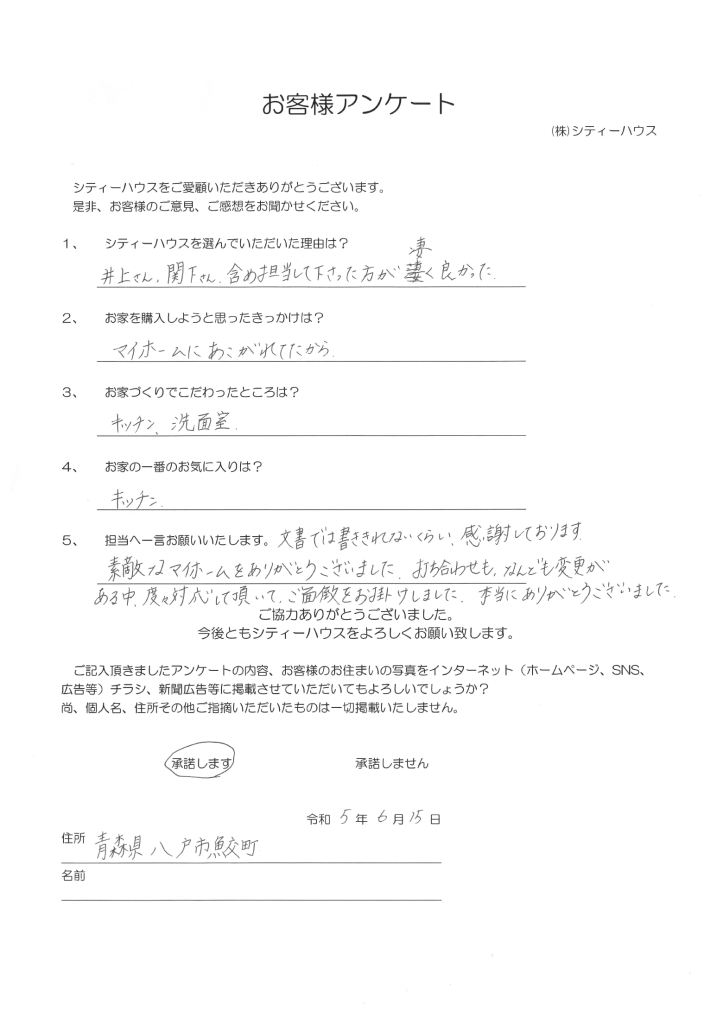 お客様アンケート
(株)シティーハウス
シティーハウスをご愛顧いただきありがとうございます。
是非、お客様のご意見、ご感想をお聞かせください。
1、 シティーハウスを選んでいただいた理由は？
凄
井上さん、関下さん、含め担当して下さった方が凄く良かった。
2、 お家を購入しようと思ったきっかけは？
マイホームにあこがれてたから。
3、 お家づくりでこだわったところは？
キッチン、洗面室。
4、 お家の一番のお気に入りは？
キッチン。
5、 担当へ一言お願いいたします。文書では書ききれないくらい、感謝しております。
素敵なマイホームをありがとうございました。打ち合わせも、なんども変更が
ある中、度々対応して頂いて、ご面倒をお掛けしました。本当にありがとうございました。
ご協力ありがとうございました。
今後ともシティーハウスをよろしくお願い致します。
ご記入頂きましたアンケートの内容、お客様のお住まいの写真をインターネット（ホームページ、SNS、
広告等）チラシ、新聞広告等に掲載させていただいてもよろしいでしょうか？
尚、個人名、住所その他ご指摘いただいたものは一切掲載いたしません。
承諾します 承諾しません
令和 5 年 6 月 15 日
住所 青森県八戸市鮫町
名前